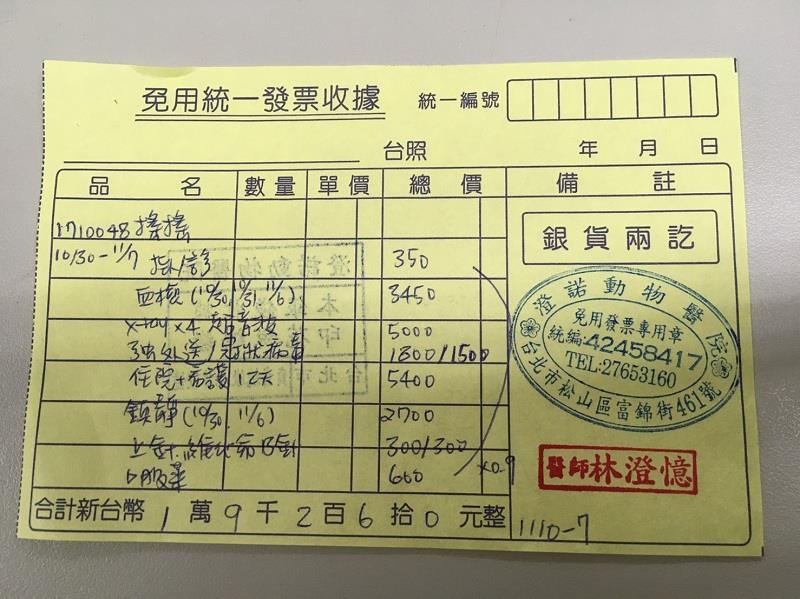 免用統一發票收據
統一編號
台照 年 月 日
品 名 數量 單價 總 價 備 註
1710048 搖搖
10/30-11/7 掛/診 350
血檢(10/30, 10/31, 11/6) 3450
X-ray x4. 超音波 5000
1800/1500
住院+看護 12天 5400
鎮靜(10/30. 11/6) 2700
止針.維他命B針 300/300
口服藥 600 x0.9
合計新台幣 1 萬 9 千 2 百 6 拾 0 元整
1110-7
銀貨兩訖
澄諾動物醫院
免用發票專用章
統編:42458417
TEL:27653160
台北市松山區富錦街461號
醫師 林澄憶